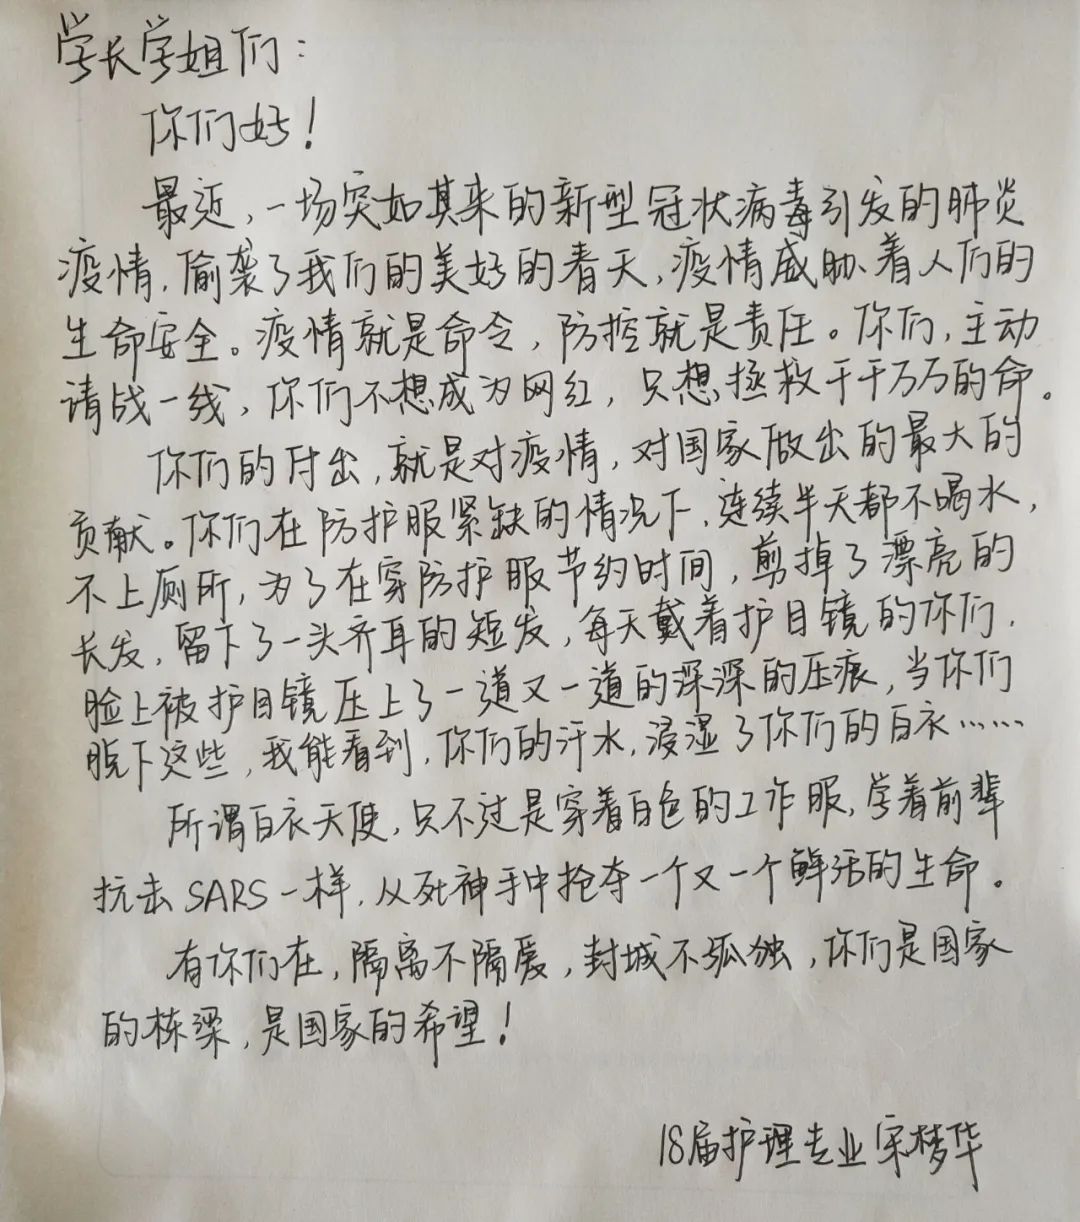 学长学姐们：
你们好！
最近，一场突如其来的新型冠状病毒引发的肺炎
疫情，偷袭了我们的美好的春天，疫情威胁着人们的
生命安全。疫情就是命令，防控就是责任。你们，主动
请战一线，你们不想成为网红，只想拯救千千万万的命。
你们的付出，就是对疫情，对国家做出的最大的
贡献。你们在防护服紧缺的情况下，连续半天都不喝水，
不上厕所，为了在穿防护服节约时间，剪掉了漂亮的
长发，留下了一头齐耳的短发，每天戴着护目镜的你们，
脸上被护目镜压上了一道又一道的深深的压痕，当你们
脱下这些，我能看到，你们的汗水，浸湿了你们的白衣……
所谓白衣天使，只不过是穿着白色的工作服，学着前辈
抗击SARS一样，从死神手中抢夺一个又一个鲜活的生命。
有你们在，隔离不隔爱，封城不孤独，你们是国家
的栋梁，是国家的希望！
18届护理专业宋梦华